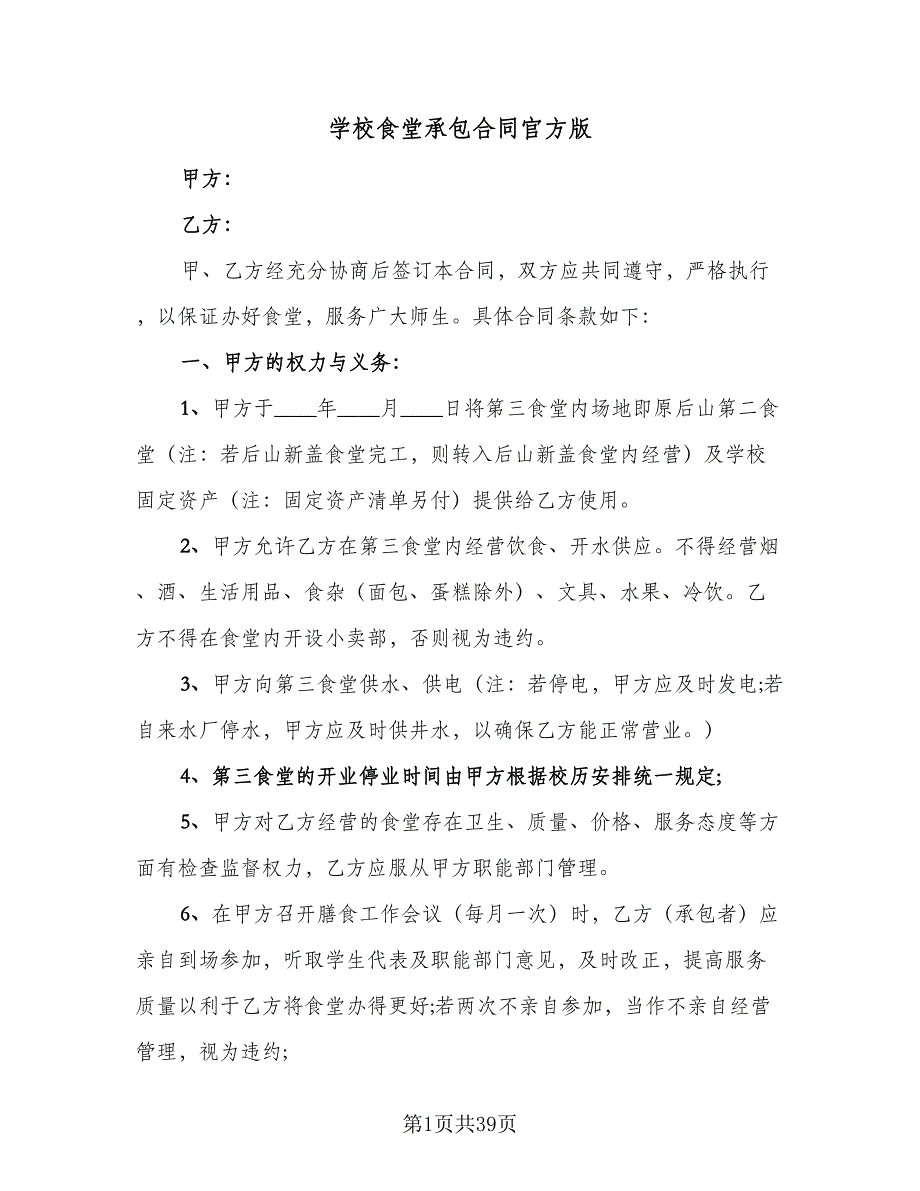 学校食堂承包合同官方版
甲方：
乙方：
甲、乙方经充分协商后签订本合同，双方应共同遵守，严格执行
，以保证办好食堂，服务广大师生。具体合同条款如下：
一、甲方的权力与义务：
1、甲方于____年____月____日将第三食堂内场地即原后山第二食
堂（注：若后山新盖食堂完工，则转入后山新盖食堂内经营）及学校
固定资产（注：固定资产清单另付）提供给乙方使用。
2、甲方允许乙方在第三食堂内经营饮食、开水供应。不得经营烟
、酒、生活用品、食杂（面包、蛋糕除外）、文具、水果、冷饮。乙
方不得在食堂内开设小卖部，否则视为违约。
3、甲方向第三食堂供水、供电（注：若停电，甲方应及时发电;若
自来水厂停水，甲方应及时供井水，以确保乙方能正常营业。）
4、第三食堂的开业停业时间由甲方根据校历安排统一规定;
5、甲方对乙方经营的食堂存在卫生、质量、价格、服务态度等方
面有检查监督权力，乙方应服从甲方职能部门管理。
6、在甲方召开膳食工作会议（每月一次）时，乙方（承包者）应
亲自到场参加，听取学生代表及职能部门意见，及时改正，提高服务
质量以利于乙方将食堂办得更好;若两次不亲自参加，当作不亲自经营
管理，视为违约;
第1页共39页